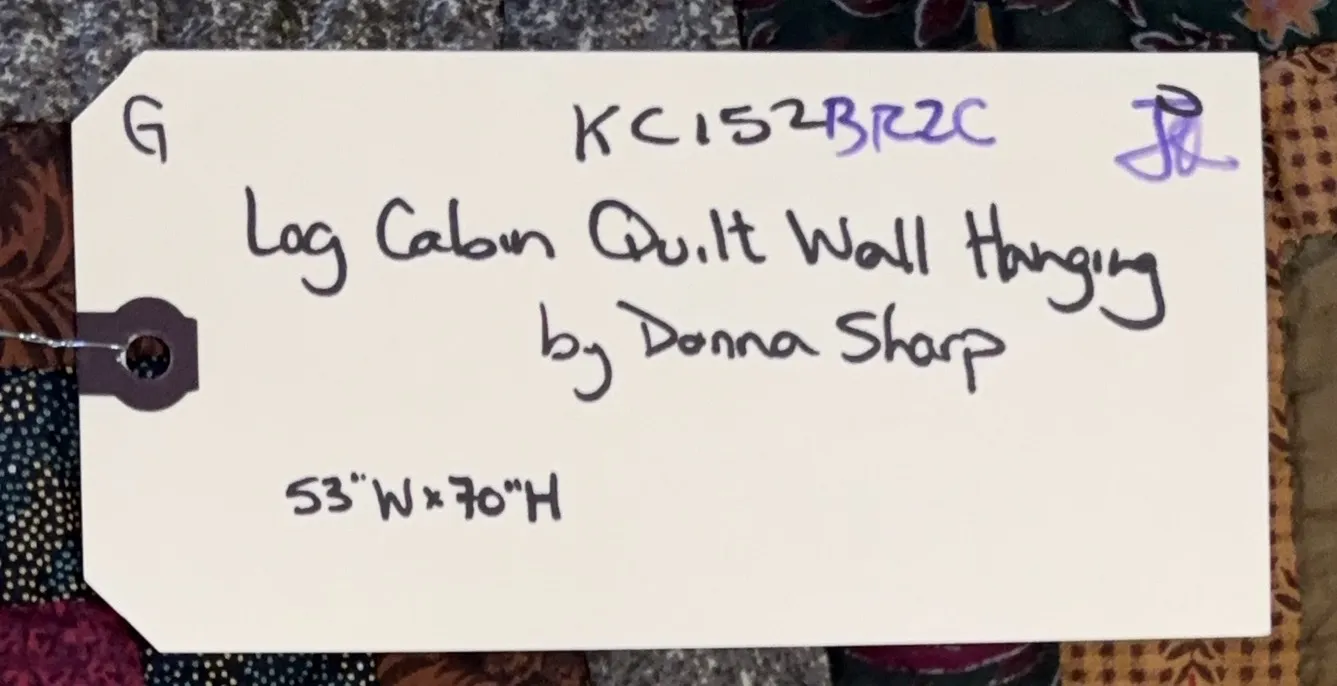 G KC152BRZC
Log Cabin Quilt Wall Hanging
by Donna Sharp
53"W x 70"H